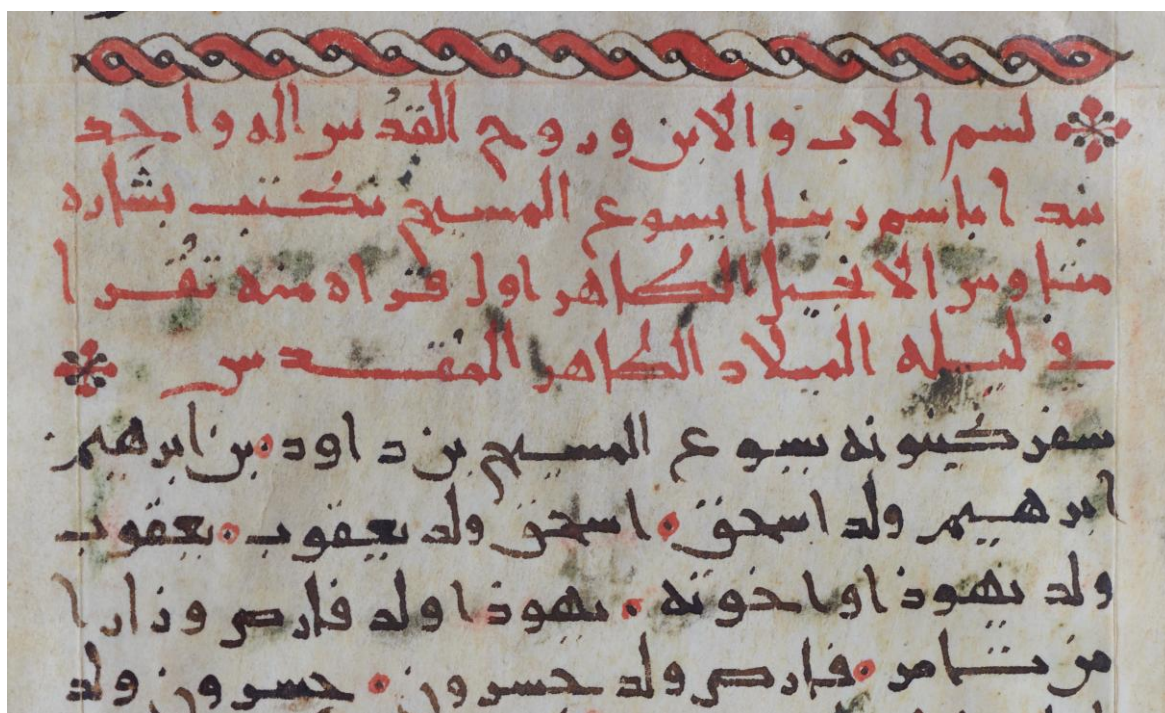 بسم الاب والابن وروح القدس اله واحد
نبدا باسم ربنا ايسوع المسيح نكتب بشاره
متاوس الانجيل الطاهر اول قراه منه تقرا
في ليله الميلاد الطاهر المقدس
سفر كينونه يسوع المسيح بن داود بن ابرهيم
ابرهيم ولد اسحق اسحق ولد يعقوب يعقوب
ولد يهوذا واخوته يهوذا ولد فارص وزارا
من تامر فارص ولد حسرون حسرون ولد